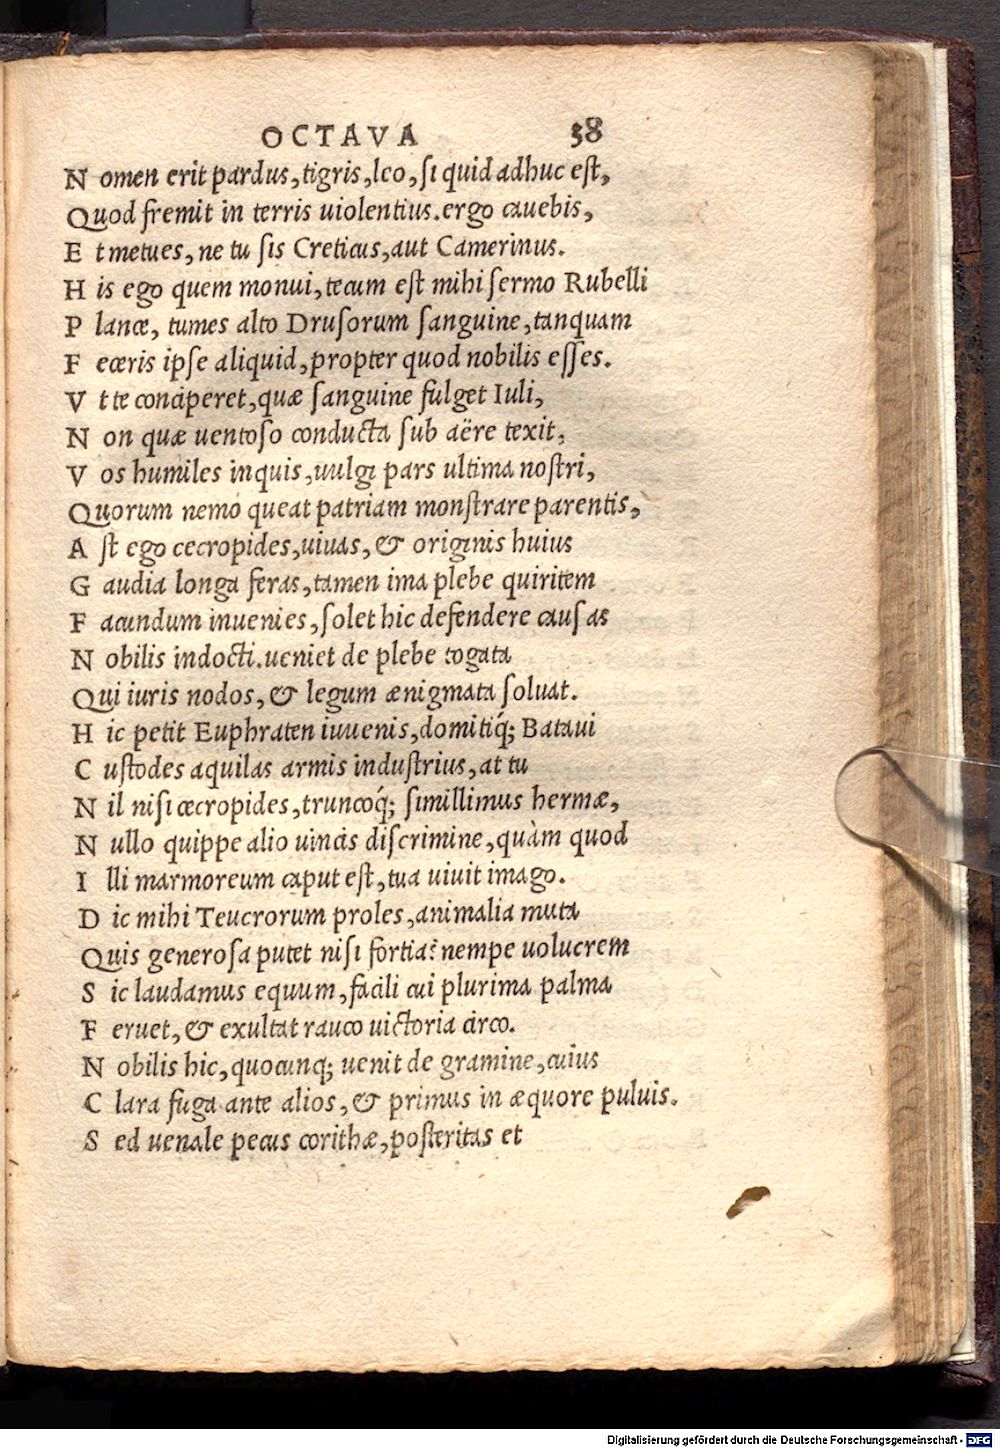 OCTAVA 38
N omen erit pardus, tigris, leo, ſi quid adhuc eſt,
Quod fremit in terris uiolentius. ergo cauebis,
E t metues, ne tu ſis Creticus, aut Camerinus.
H is ego quem monui, tecum eſt mihi ſermo Rubelli
P lance, tumes alto Druſorum ſanguine, tanquam
F eceris ipſe aliquid, propter quod nobilis eſſes.
V t te conciperet, quæ ſanguine fulget Iuli,
N on quæ uentoſo conducta ſub aëre texit,
V os humiles inquis, uulgi pars ultima noſtri,
Quorum nemo queat patriam monſtrare parentis,
A ſt ego cecropides, uiuas, & originis huius
G audia longa feras, tamen ima plebe quiritem
F acundum inuenies, ſolet hic defendere cauſas
N obilis indocti. ueniet de plebe togata
Qui iuris nodos, & legum ænigmata ſoluat.
H ic petit Euphraten iuuenis, domitiq́; Bataui
C uſtodes aquilas armis induſtrius, at tu
N il niſi cecropides, truncoq́; ſimillimus hermæ,
N ullo quippe alio uincis diſcrimine, quàm quod
I lli marmoreum caput eſt, tua uiuit imago.
D ic mihi Teucrorum proles, animalia muta
Quis generoſa putet niſi fortia? nempe uolucrem
S ic laudamus equum, facili cui plurima palma
F eruet, & exultat rauco uictoria circo.
N obilis hic, quocunq; uenit de gramine, cuius
C lara fuga ante alios, & primus in æquore puluis.
S ed uenale pecus corithæ, poſteritas et
Digitalisierung gefördert durch die Deutsche Forschungsgemeinschaft - DFG